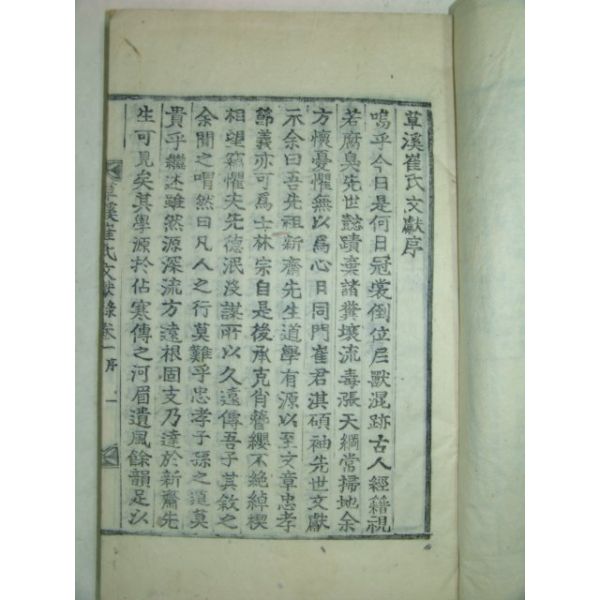 草溪崔氏文獻序
嗚乎今日是何日冠裳倒位尼獸混跡古人經籍視
若腐臭先世懿蹟棄諸糞壤流毒漲天綱常掃地余
方懷憂懼無以爲心日同門崔君淇碩袖先世文獻
示余曰吾先祖新齋先生道學有源以至文章忠孝
節義亦可爲士林宗自是後承克肖簪纓不絶綽楔
相望竊懼夫先德泯沒謀所以久遠傳吾子其敘之
余聞之喟然曰凡人之行莫難乎忠孝子孫之道莫
貴乎繼述雖然源深流方遠根固支乃達於新齋先
生可見矣其學源於佔寒傳之河眉遺風餘韻足以
草溪崔氏文獻錄卷一 序 一